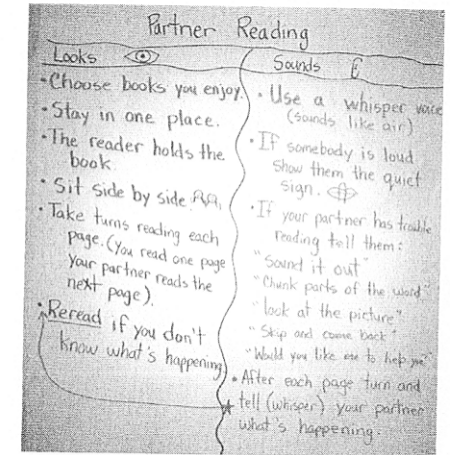 Partner Reading
Looks
• Choose books you enjoy.
• Stay in one place.
• The reader holds the
book.
• Sit side by side
• Take turns reading each
page. (You read one page
your partner reads the
next page).
• Reread if you don't
know what's happening
Sounds
• Use a whisper voice
(sounds like air)
• If somebody is loud
show them the quiet
sign.
• If your partner has trouble
reading tell them:
"sound it out"
"Chunk parts of the word"
"look at the picture"
"Skip and come back"
"Would you like me to help you"
• After each page turn and
tell (whisper) your partner
what's happening.